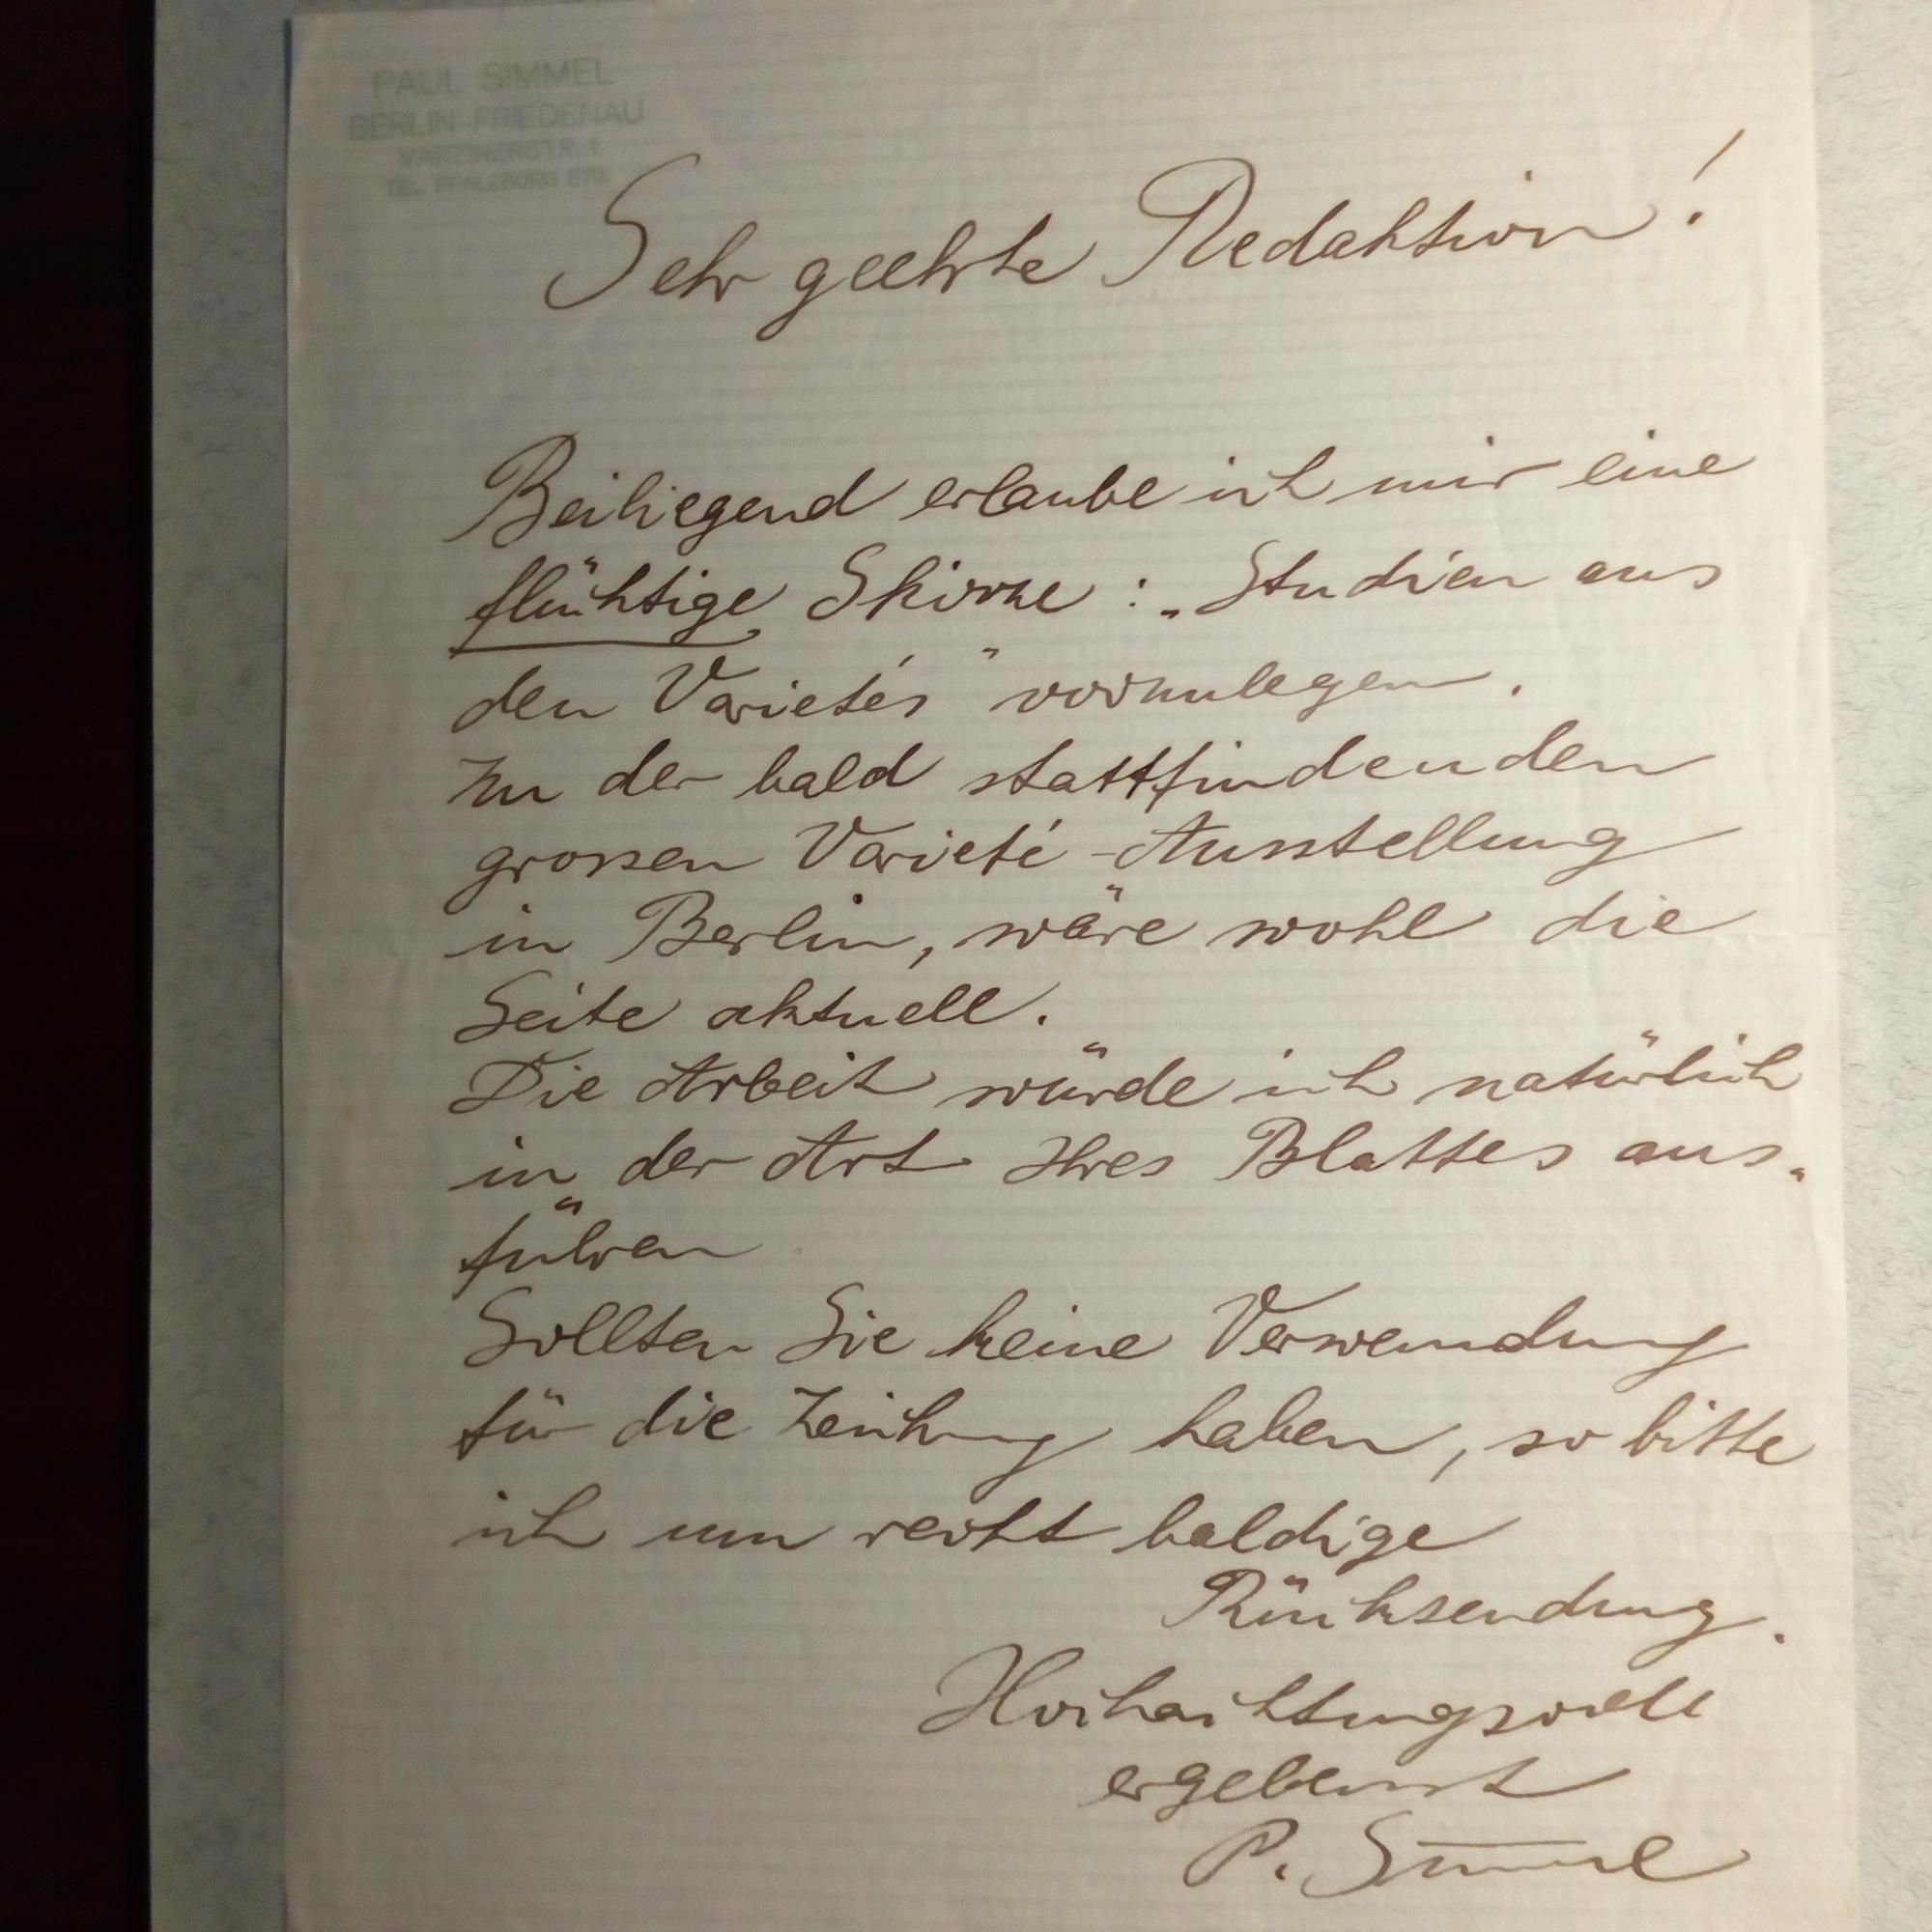 PAUL SIMMEL
BERLIN-FRIEDENAU
VARZINERSTR. 1
TEL. PFALZBURG
Sehr geehrte Redaktion!
Beiliegend erlaube ich mir eine
flüchtige Skizze : „Studien aus
den Varietés" vorzulegen.
Zu der bald stattfindenden
grossen Varieté-Ausstellung
in Berlin, wäre wohl die
Seite aktuell.
Die Arbeit würde ich natürlich
in der Art Ihres Blattes aus-
führen
Sollten Sie keine Verwendung
für die Zeichnung haben, so bitte
ich um recht baldige
Rücksendung.
Hochachtungsvoll
ergebenst
P. Simmel